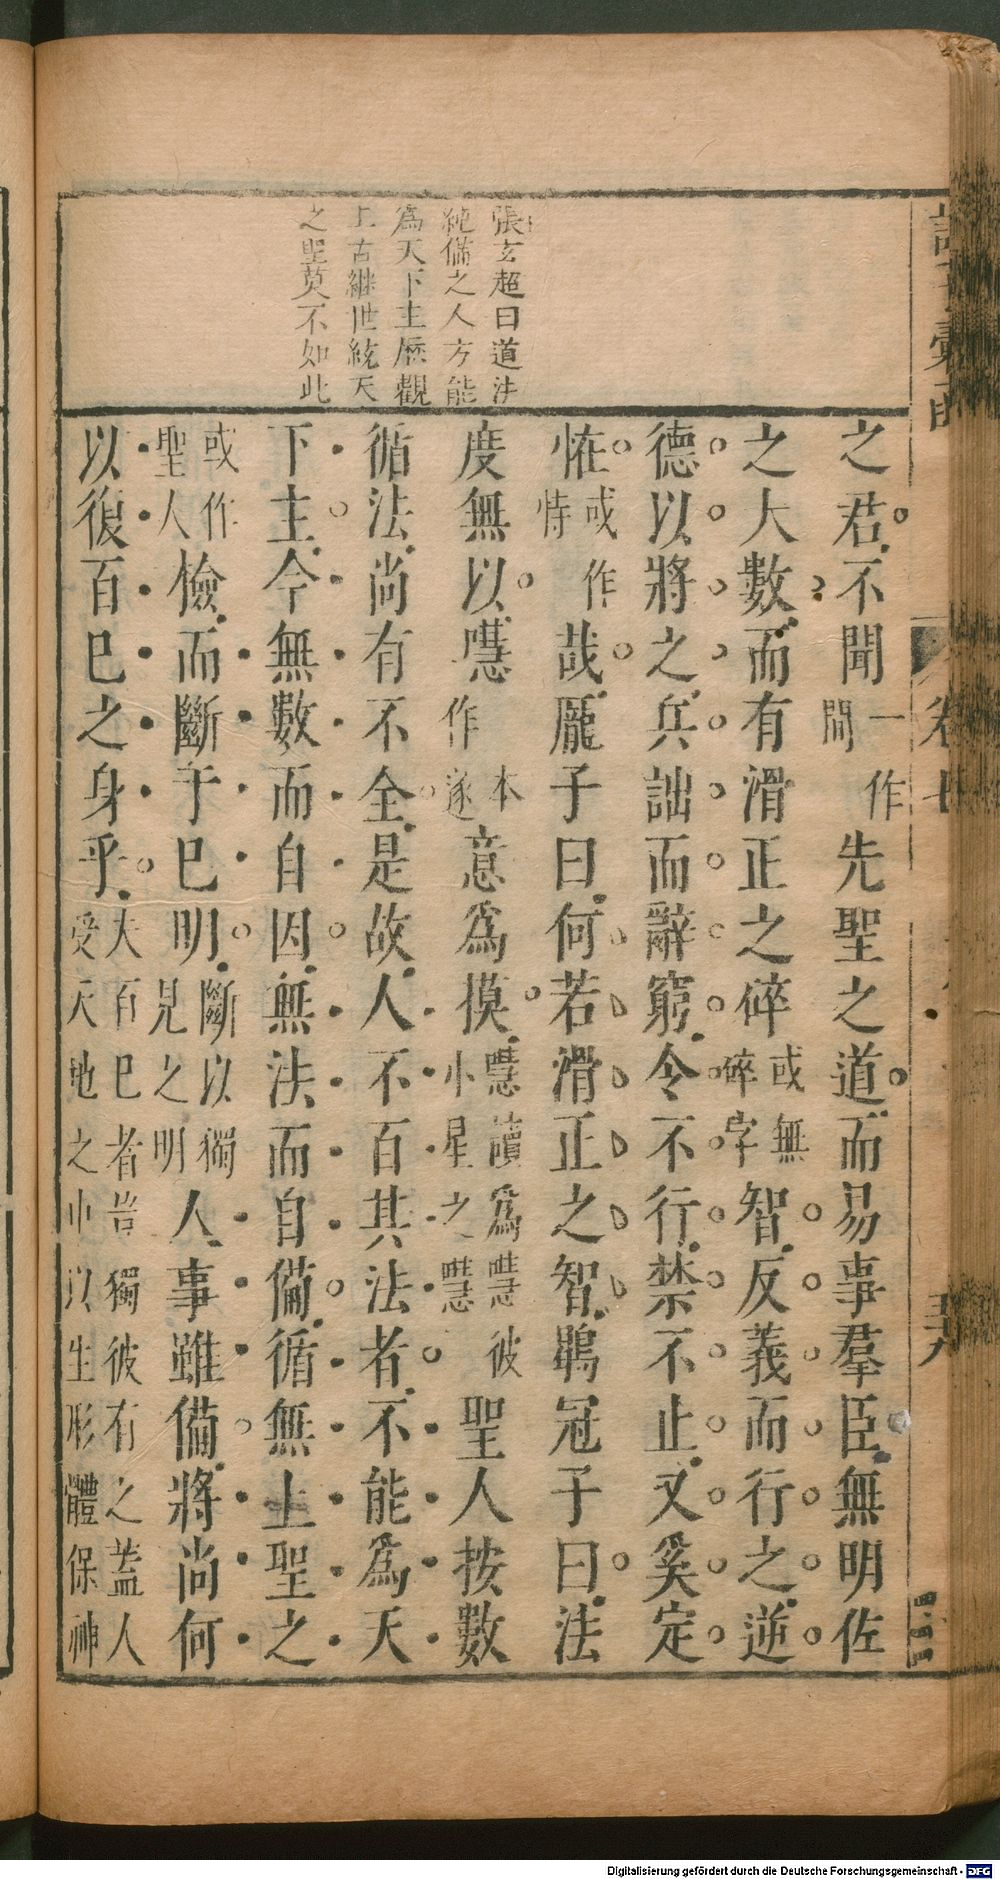 張玄超曰道法
純備之人方能
爲天下主厯觀
上古繼世統天
之聖莫不如此
之君不聞一作問先聖之道而易事羣臣無明佐
之大數而有滑正之碎或無碎字智反義而行之逆
德以將之兵詘而辭窮令不行禁不止又奚定
恠或作恃哉龎子曰何若滑正之智鶡冠子曰法
度無以嚖本作遂意爲摸嚖讀爲嘒彼小星之嘒聖人按數
循法尚有不全是故人不百其法者不能爲天
下主今無數而自因無法而自備循無上聖之
或作聖人檢而斷于巳明斷以獨見之明人事雖備將尚何
以復百巳之身乎大百巳者豈獨彼有之蓋人受天地之中以生形體保神
卷七
Digitalisierung gefördert durch die Deutsche Forschungsgemeinschaft - DFG